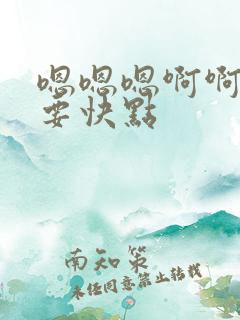 嗯嗯嗯啊啊
要快點
南知策
未经同意禁止转载